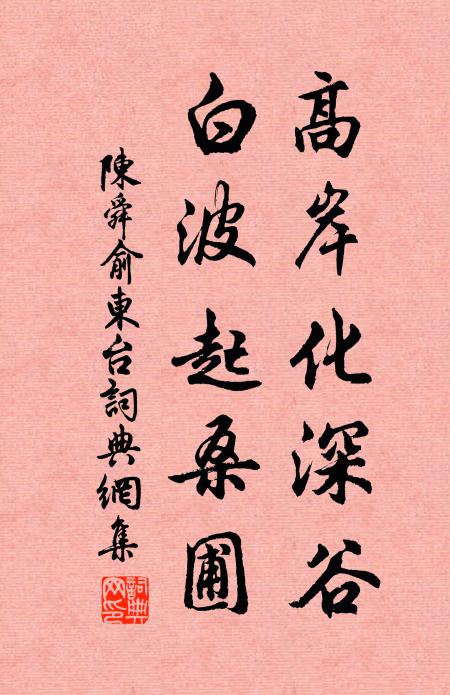 高岸化深谷
白波起桑圃
陳舜俞東台詞典網集
詞典
网印